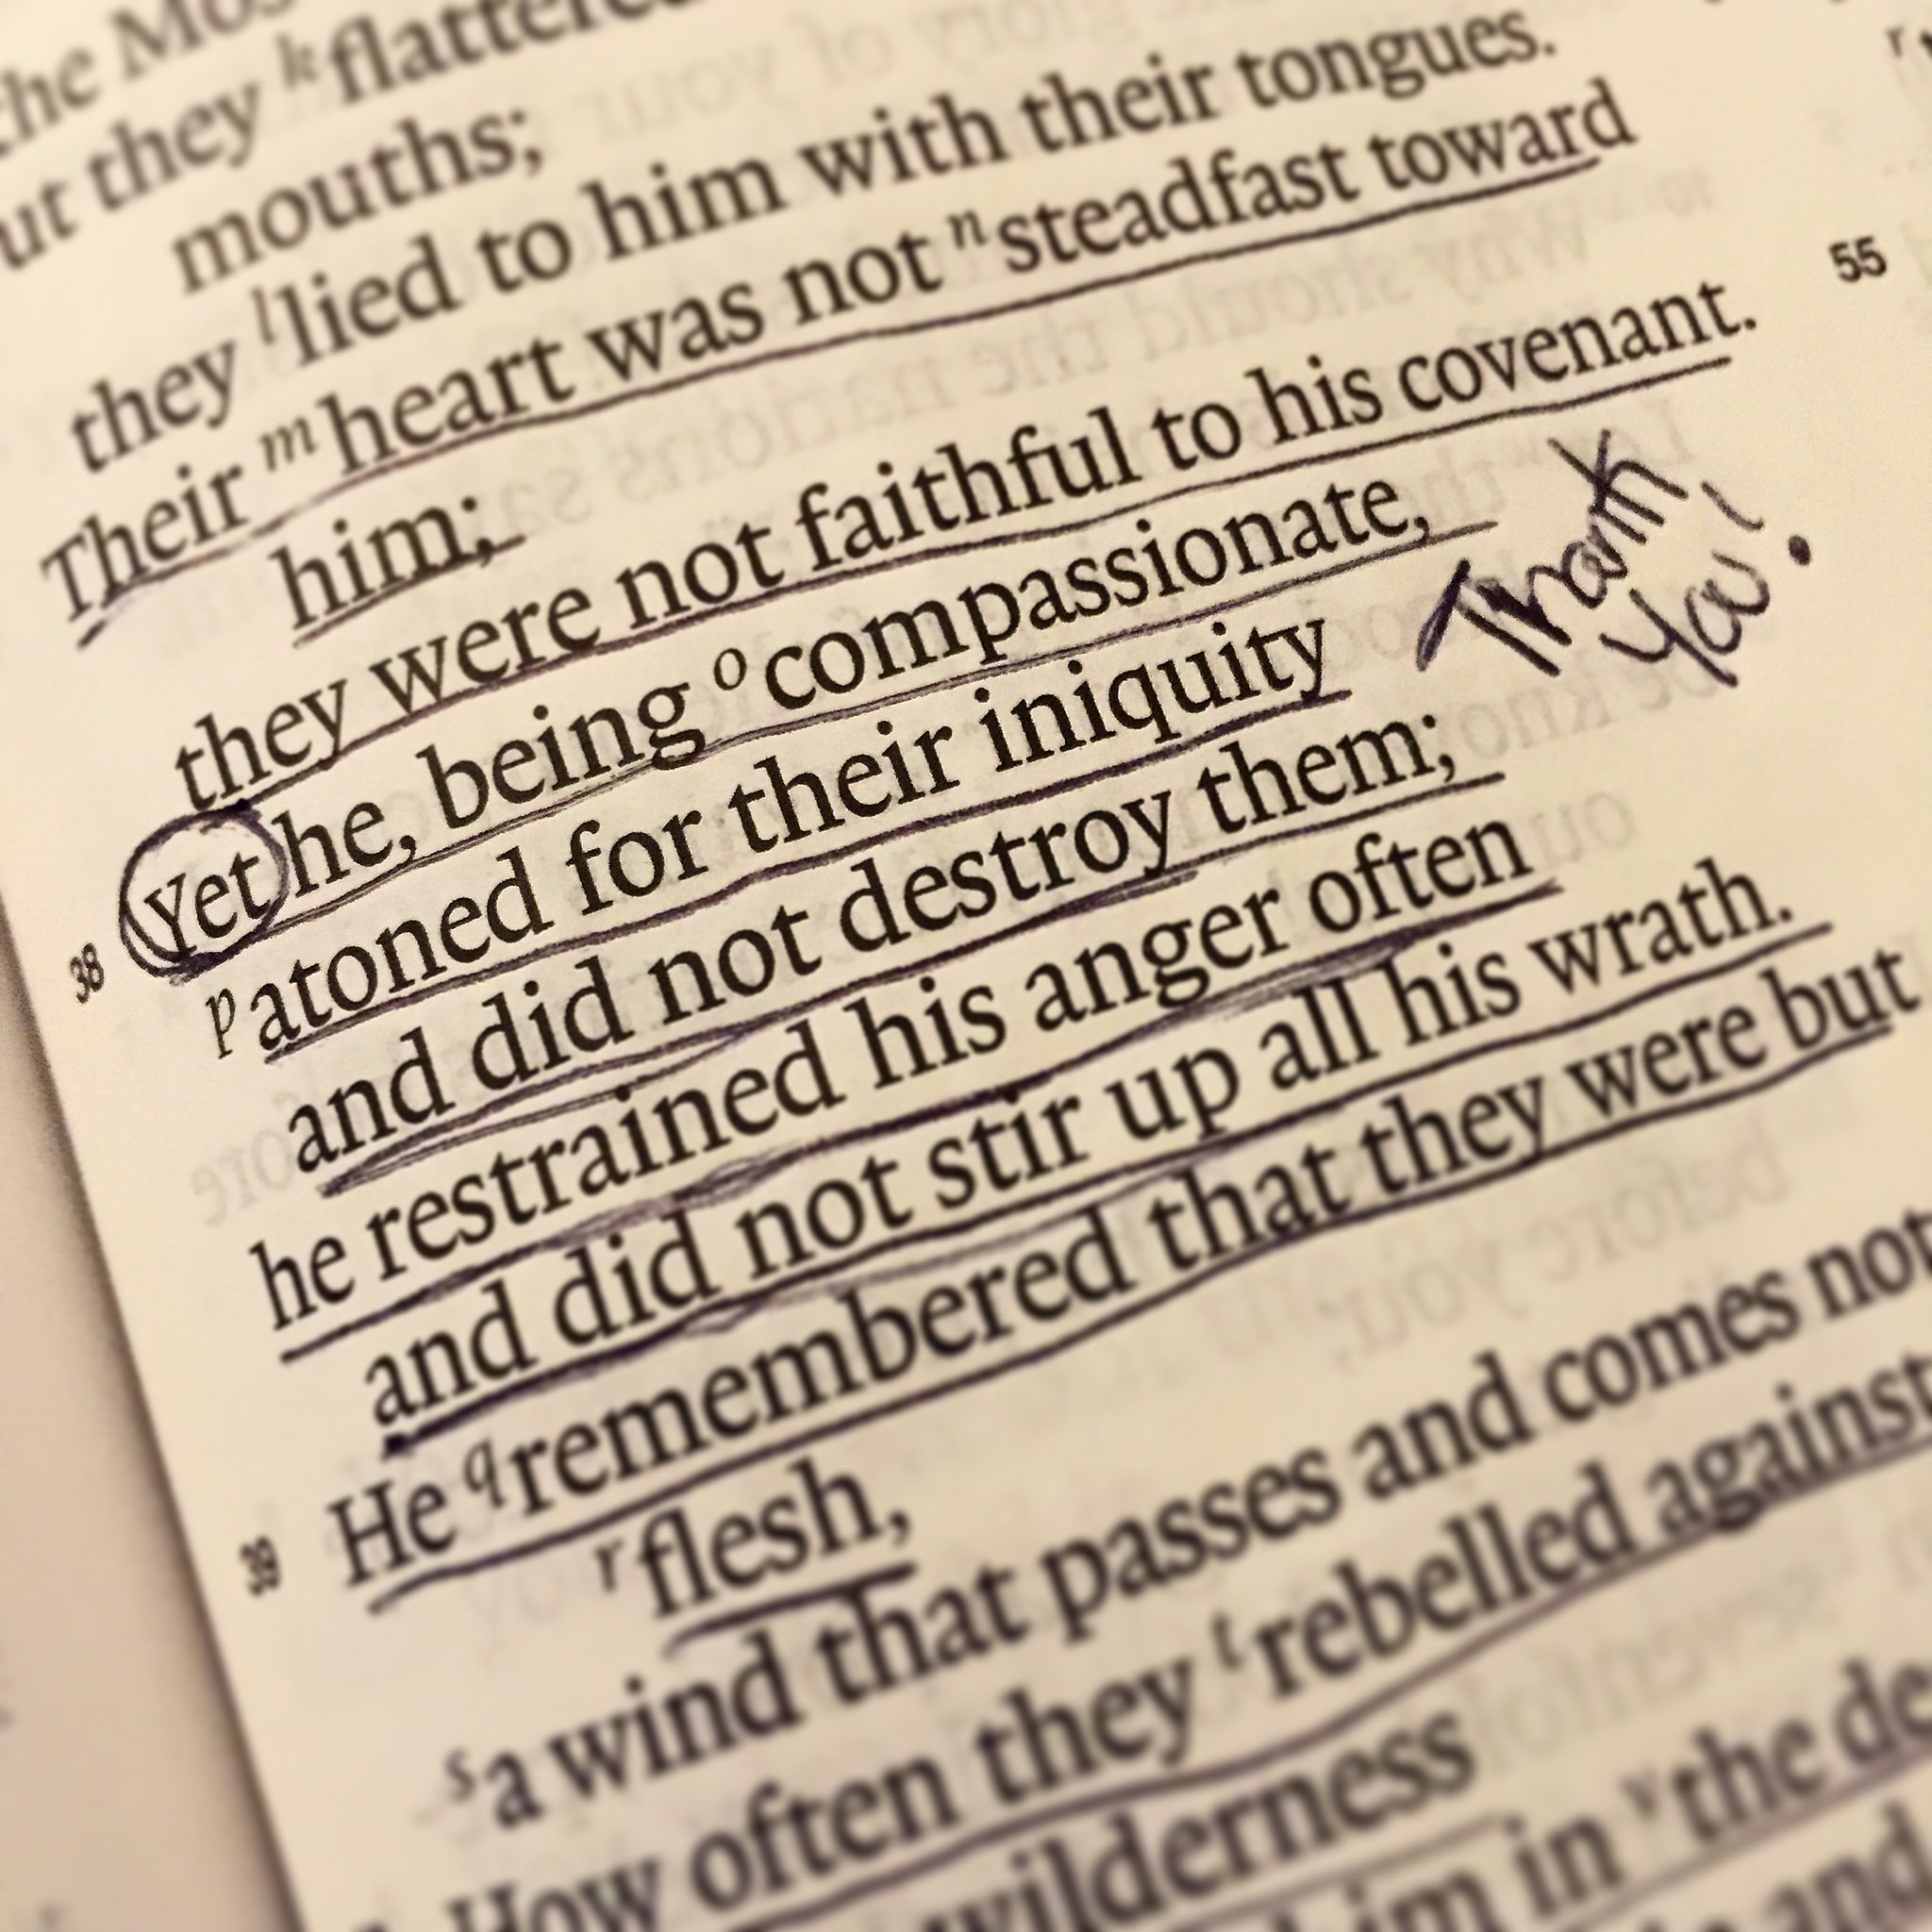 the Mos
ut they k flattered
mouths;
they l lied to him with their tongues.
Their m heart was not n steadfast toward
him;
they were not faithful to his covenant.
38 Yet he, being o compassionate,
p atoned for their iniquity
and did not destroy them;
he restrained his anger often
and did not stir up all his wrath.
39 He q remembered that they were but
r flesh,
s a wind that passes and comes not
How often they t rebelled against
wilderness
him in v the de
and
Thank
You!
55
r